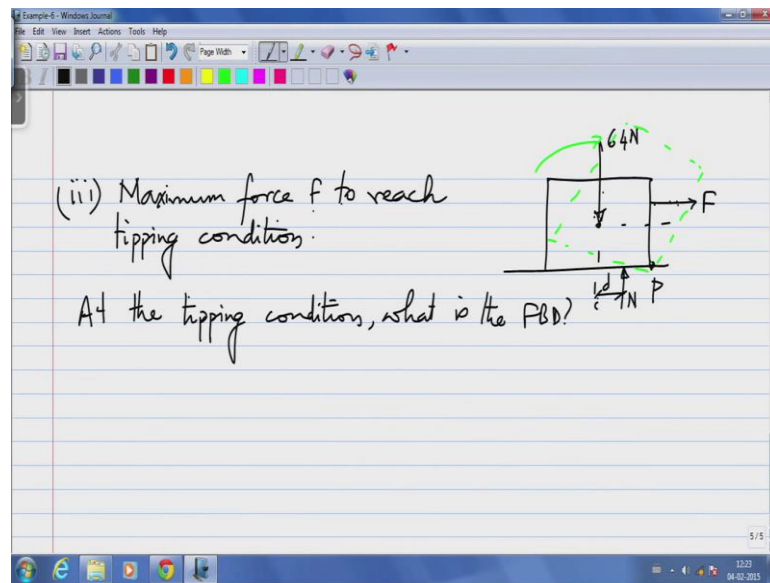 Example-6 - Windows Journal
File Edit View Insert Actions Tools Help
Page Width
64N
(iii) Maximum force f to reach
tipping condition.
F
d
N
P
At the tipping condition, what is the FBD?
5/5
12:23
04-02-2015